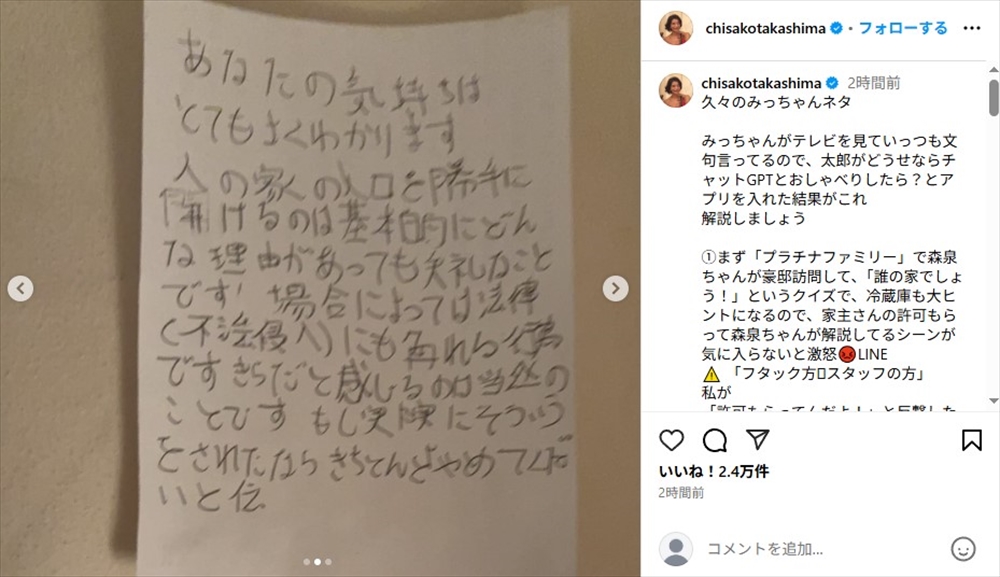 あなたの気持ちは
とてもよくわかります
人の家の入口を勝手に
開けるのは基本的にどん
な理由があっても失礼なこと
です 場合によっては法律
(不法侵入)にも触れる行為
ですきらだと感じるのは当然の
ことです もし実際にそういう
とされたなら きちんと やめてくだ
いと伝
chisakotakashima • フォローする
chisakotakashima 2時間前
久々のみっちゃんネタ
みっちゃんがテレビを見ていっつも文
句言ってるので、太郎がどうせならチ
ャットGPTとおしゃべりしたら？とア
プリを入れた結果がこれ
解説しましょう
①まず「プラチナファミリー」で森泉
ちゃんが豪邸訪問して、「誰の家でしょ
う！」というクイズで、冷蔵庫も大ヒ
ントになるので、家主さんの許可もら
って森泉ちゃんが解説してるシーンが
気に入らないと激怒😡LINE
⚠️ 「フタック方スタッフの方」
私が
「許可もらってんだよ！」と反撃した
いいね！2.4万件
2時間前
コメントを追加...